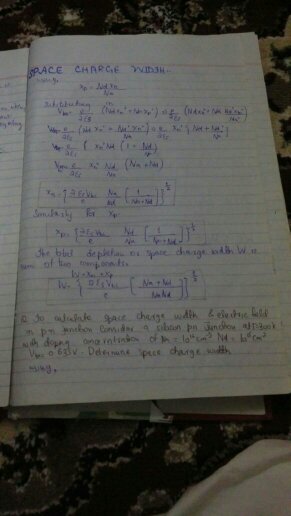 SPACE CHARGE WIDTH
Using,
xp = Nd xn / Na
Substituting in
Vbi = e/2εs (Nd xn² + Na xp²) = e/2εs (Nd xn² + Na Nd² xn² / Na²)
Vbi = e/2εs (Nd xn² + Nd² xn² / Na) = e/2εs xn² { Nd + Nd² / Na }
Vbi = e/2εs { xn² Nd (1 + Nd/Na)
Vbi = e/2εs xn² Nd/Na (Na + Nd)
xn = { 2εs Vbi / e Na/Nd [ 1 / Na+Nd ] }^½
Similarly for xp
xp = { 2εs Vbi / e Nd/Na [ 1 / Na+Nd ] }^½
The total depletion or space charge width W is
sum of two components.
W = xn + xp
W = { 2εs Vbi / e [ Na + Nd / NaNd ] }^½
Q. To calculate space charge width & electric field
in pn junction consider a silicon pn junction at T=300K
with doping concentration of Na = 10¹⁶ cm⁻³ Nd = 10¹⁵ cm⁻³
Vbi = 0.635V. Determine space charge width
using,